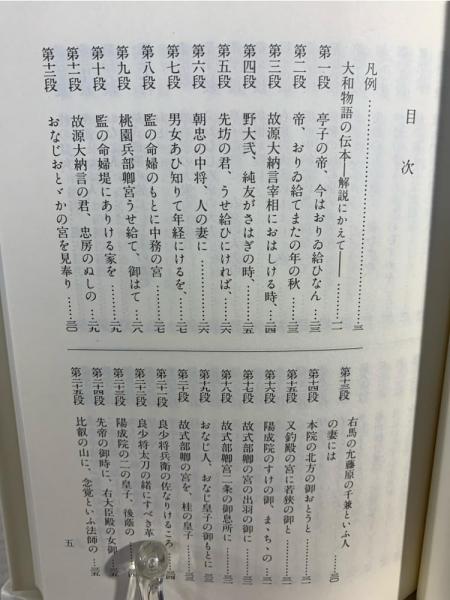 目次
凡例……三
大和物語の伝本―解説にかえて―……一一
第一段 亭子の帝、今はおりゐ給ひなん……二三
第二段 帝、おりゐ給てまたの年の秋……二三
第三段 故源大納言宰相におはしける時、……二四
第四段 野大弐、純友がさはぎの時、……二五
第五段 先坊の君、うせ給ひにければ、……二六
第六段 朝忠の中将、人の妻に……二六
第七段 男女あひ知りて年経にけるを、……二七
第八段 監の命婦のもとに中務の宮……二七
第九段 桃園兵部卿宮うせ給て、御はて……二八
第十段 監の命婦堤にありける家を……二九
第十一段 故源大納言の君、忠房のぬしの……二九
第十二段 おなじおとゞかの宮を見奉り……三〇
第十三段 右馬の允藤原の千兼といふ人
の妻には……三〇
第十四段 本院の北方の御おとうと……三一
第十五段 又釣殿の宮に若狭の御と……三一
第十六段 陽成院のすけの御、まゝちゝの……三一
第十七段 故式部卿の宮の出羽の御に……三二
第十八段 故式部卿宮二条の御息所に……三二
第十九段 おなじ人、おなじ皇子の御もとに
第二十段 故式部卿の宮を、桂の皇子
第二十一段 良少将兵衛の佐なりけるころ
第二十二段 良少将太刀の緒にすべき革
第二十三段 陽成院の二の皇子、後蔭の
第二十四段 先帝の御時に、右大臣殿の女御……三五
第二十五段 比叡の山に、念覚といふ法師の……三五
五